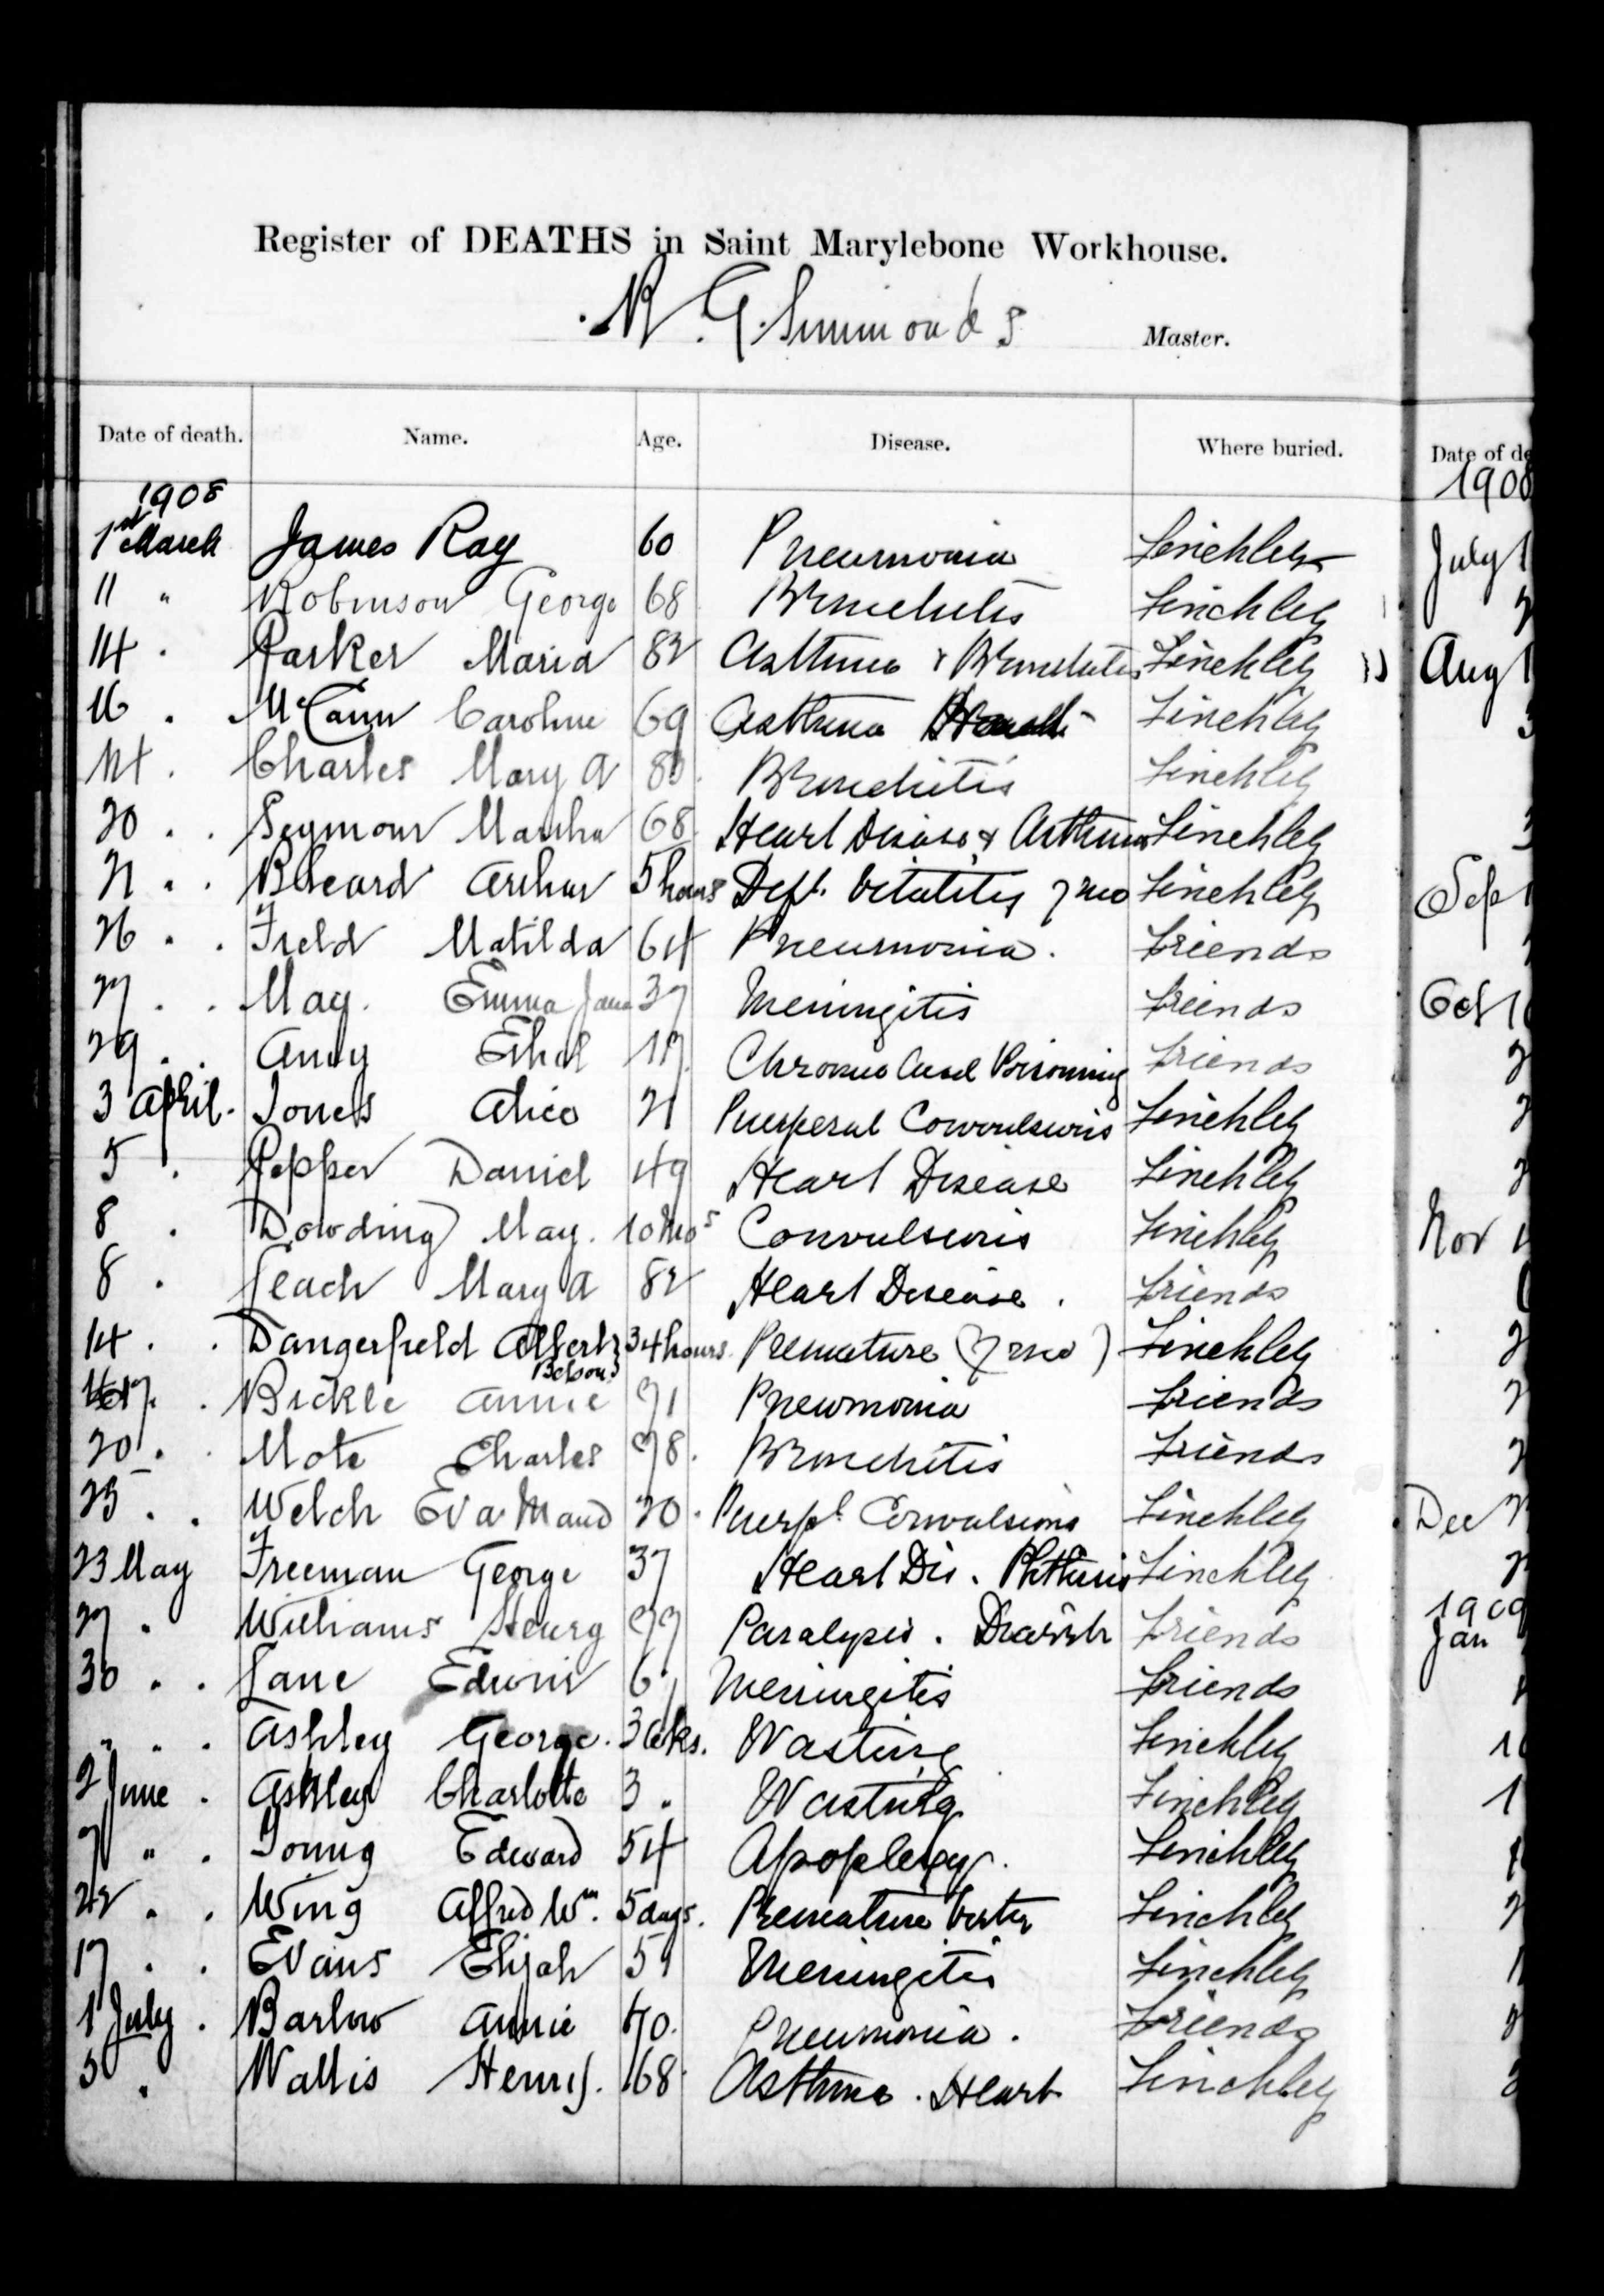 Register of DEATHS in Saint Marylebone Workhouse.
R. G. Simmonds Master.
Date of death. Name. Age. Disease. Where buried.
1908
1st March James Ray 60 Pneumonia Finchley
11 " Robinson George 68 Bronchitis Finchley
14 . Parker Maria 82 Asthma & Bronchitis Finchley
16 . McCann Caroline 69 Asthma Finchley
. Charles Mary A Bronchitis Finchley
20 . . Seymour Martha 68 Heart Disease & Asthma Finchley
21 . . Arthur 5 hours Deft. Vitality 7 mo Finchley
26 . . Field Matilda 64 Pneumonia. friends
27 . . May. Emma Jane 37 Meningitis friends
29 . . Ethel Chronic Lead Poisoning friends
3 April. Jones Alice 21 Puerperal Convulsions Finchley
5 . Pepper Daniel 49 Heart Disease Finchley
8 . Dowding May. 10 Mos Convulsions Finchley
8 . Leach Mary A 82 Heart Disease. friends
14 . . Dangerfield Albert 34 hours Premature (7 mo) Finchley
17 . Bickle Annie 71 Pneumonia friends
20 . Mote Charles 78. Bronchitis friends
25 . . Welch Eva Maud 20. Puerpl. Convulsions Finchley
23 May Freeman George 37 Heart Dis. Phthisis Finchley
27 . Williams Henry 77 Paralysis. friends
30 . . Lane Edwin 6 Meningitis friends
" . . Ashley George. 3 wks. Wasting Finchley
2 June . Ashley Charlotte 3 " Wasting Finchley
7 " . Young Edward 54 Apoplexy. Finchley
22 . . Wing Alfred Wm. 5 days. Premature birth Finchley
17 . . Evans Elijah 51 Meningitis Finchley
1 July . Barlow Annie 70. Pneumonia. friends
5 " Wallis Henry. 68 Asthma. Heart Finchley
Date of de
1908
July
Aug
Sep
Oct
Nov
Dec
1909
Jan